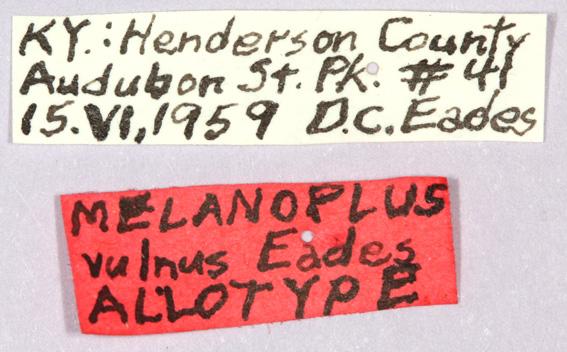 KY.: Henderson County
Audubon St. Pk. # 41
15.VI,1959 D.C. Eades
MELANOPLUS
vulnus Eades
ALLOTYPE